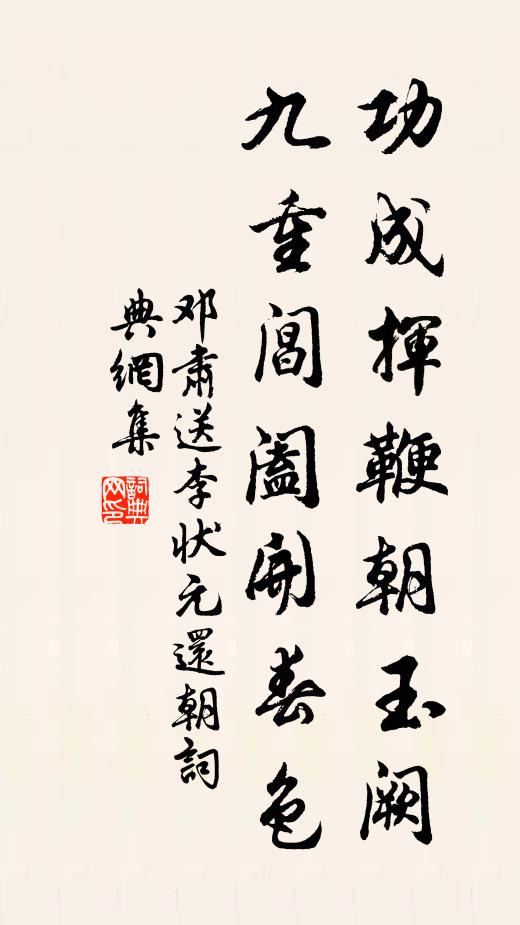 功成揮鞭朝玉阙
九重閶闔開春色
邓肅送李状元還朝詞
典網集
詞典
网印